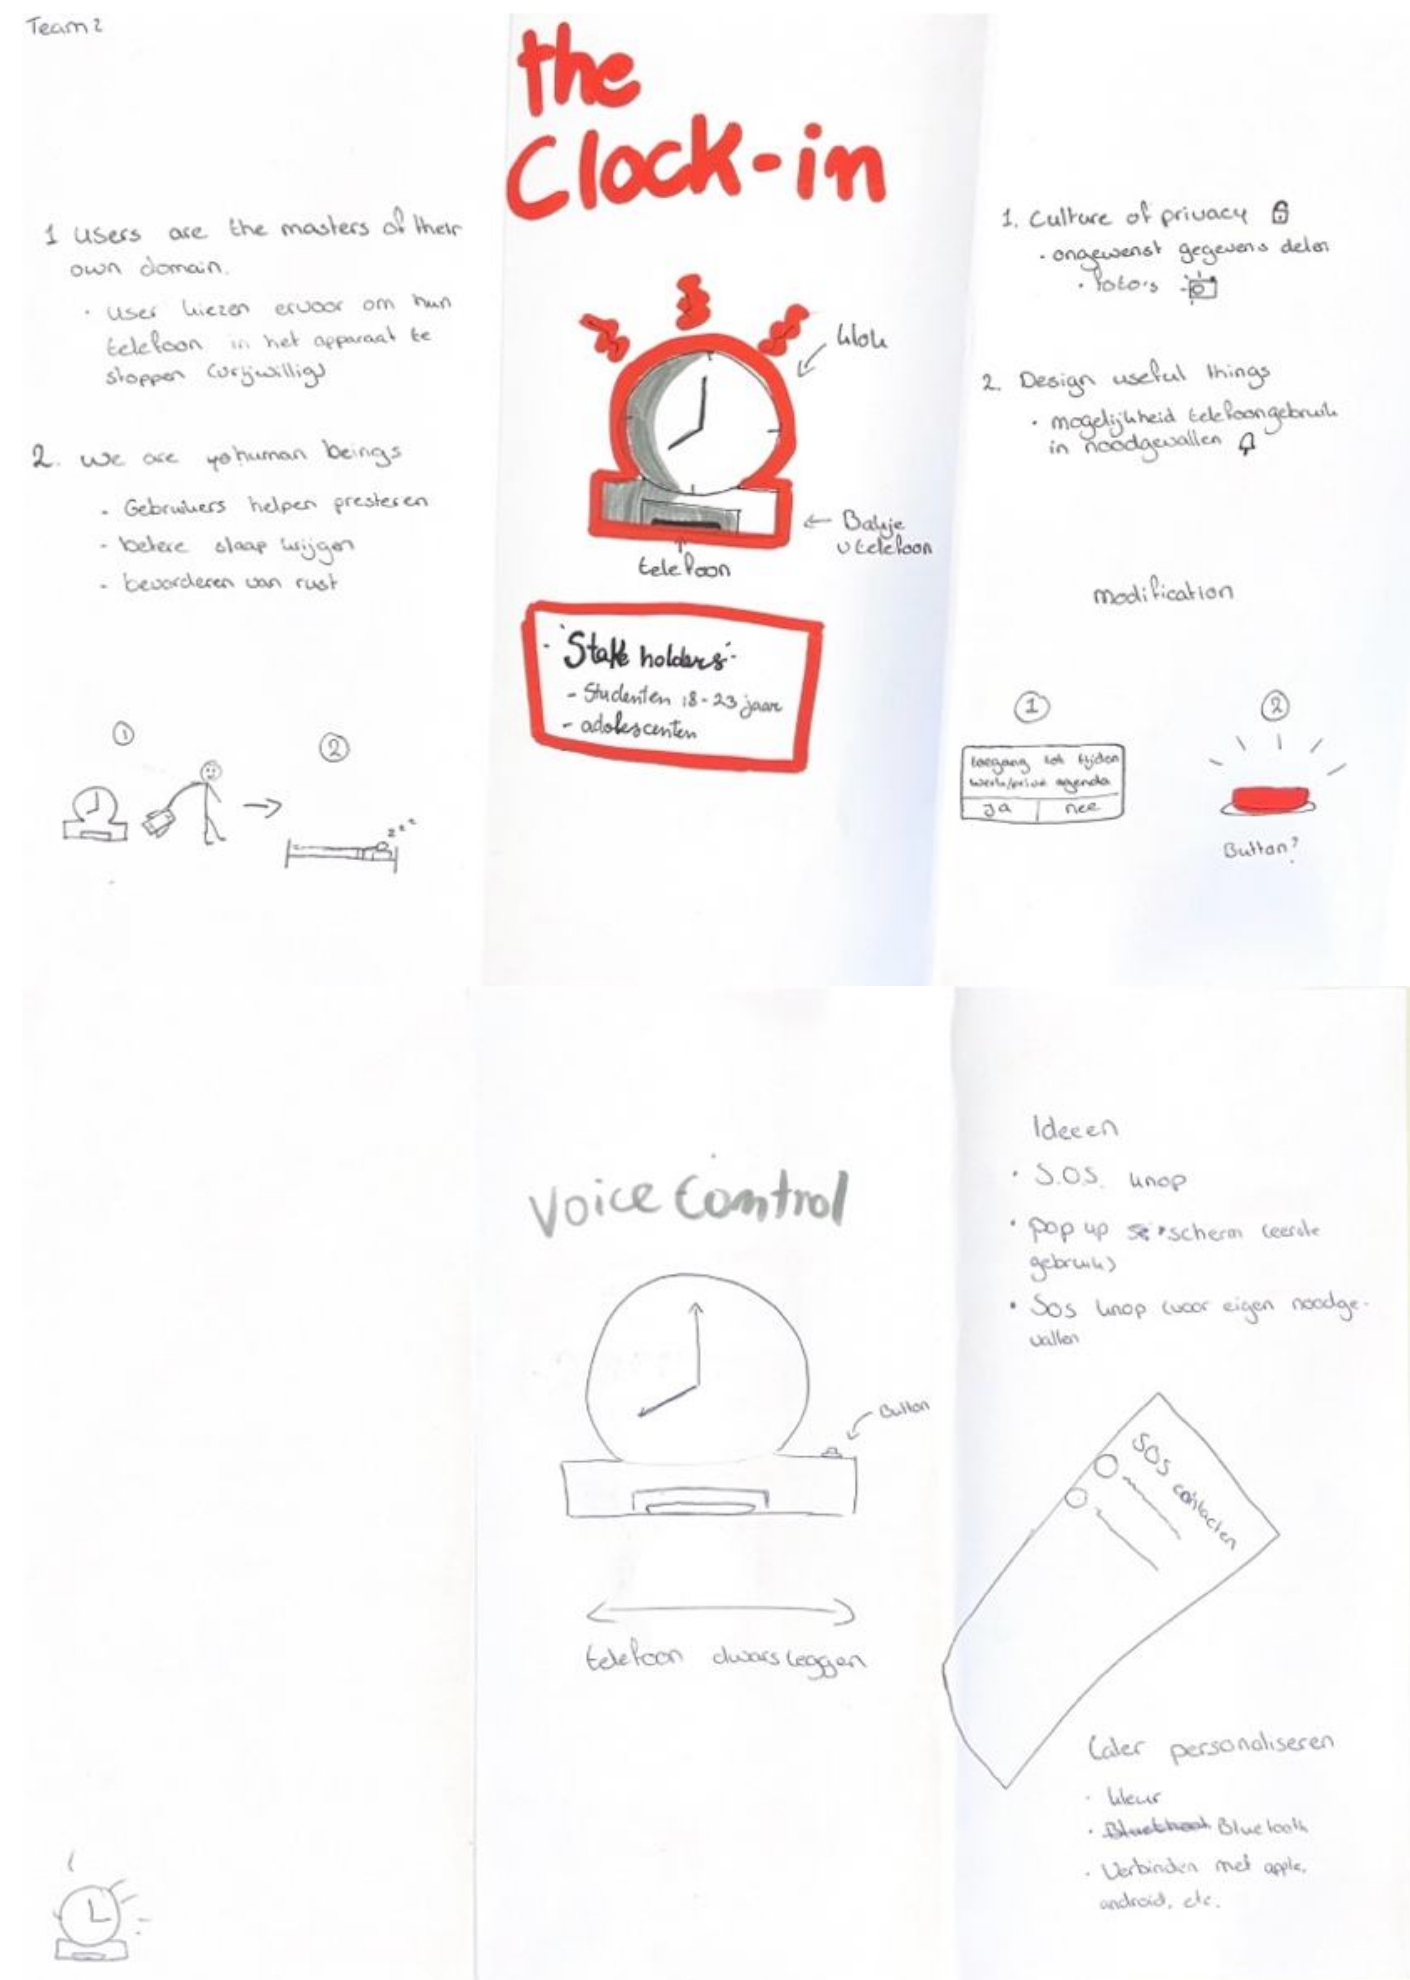 Team 2
1 Users are the masters of their
own domain.
· User kiezen ervoor om hun
telefoon in het apparaat te
stoppen (vrijwillig)
2. we are human beings
- Gebruikers helpen presteren
- betere slaap krijgen
- bevorderen van rust
1
2
zzz
the
Clock-in
klok
Bakje
v telefoon
telefoon
- 'Stake holders' -
- Studenten 18-23 jaar
- adolescenten
1. Culture of privacy
· ongewenst gegevens delen
· foto's
2. Design useful things
· mogelijkheid telefoongebruik
in noodgevallen
modification
1
toegang tot tijden
werk/prive agenda
Ja
nee
2
Button?
Voice Control
Button
telefoon dwars leggen
Ideeen
· S.O.S. knop
· pop up scherm (eerste
gebruik)
· Sos knop (voor eigen noodge-
vallen
SOS contacten
Later personaliseren
· kleur
· Bluetooth
· Verbinden met apple,
android, etc.